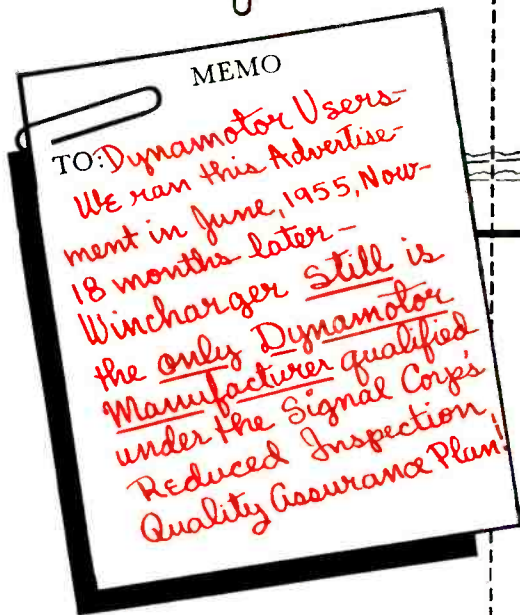 MEMO
TO: Dynamotor Users-
WE ran this Advertise-
ment in June, 1955, Now-
18 months later-
Wincharger still is
the only Dynamotor
Manufacturer qualified
under the Signal Corps
Reduced Inspection,
Quality Assurance Plan!